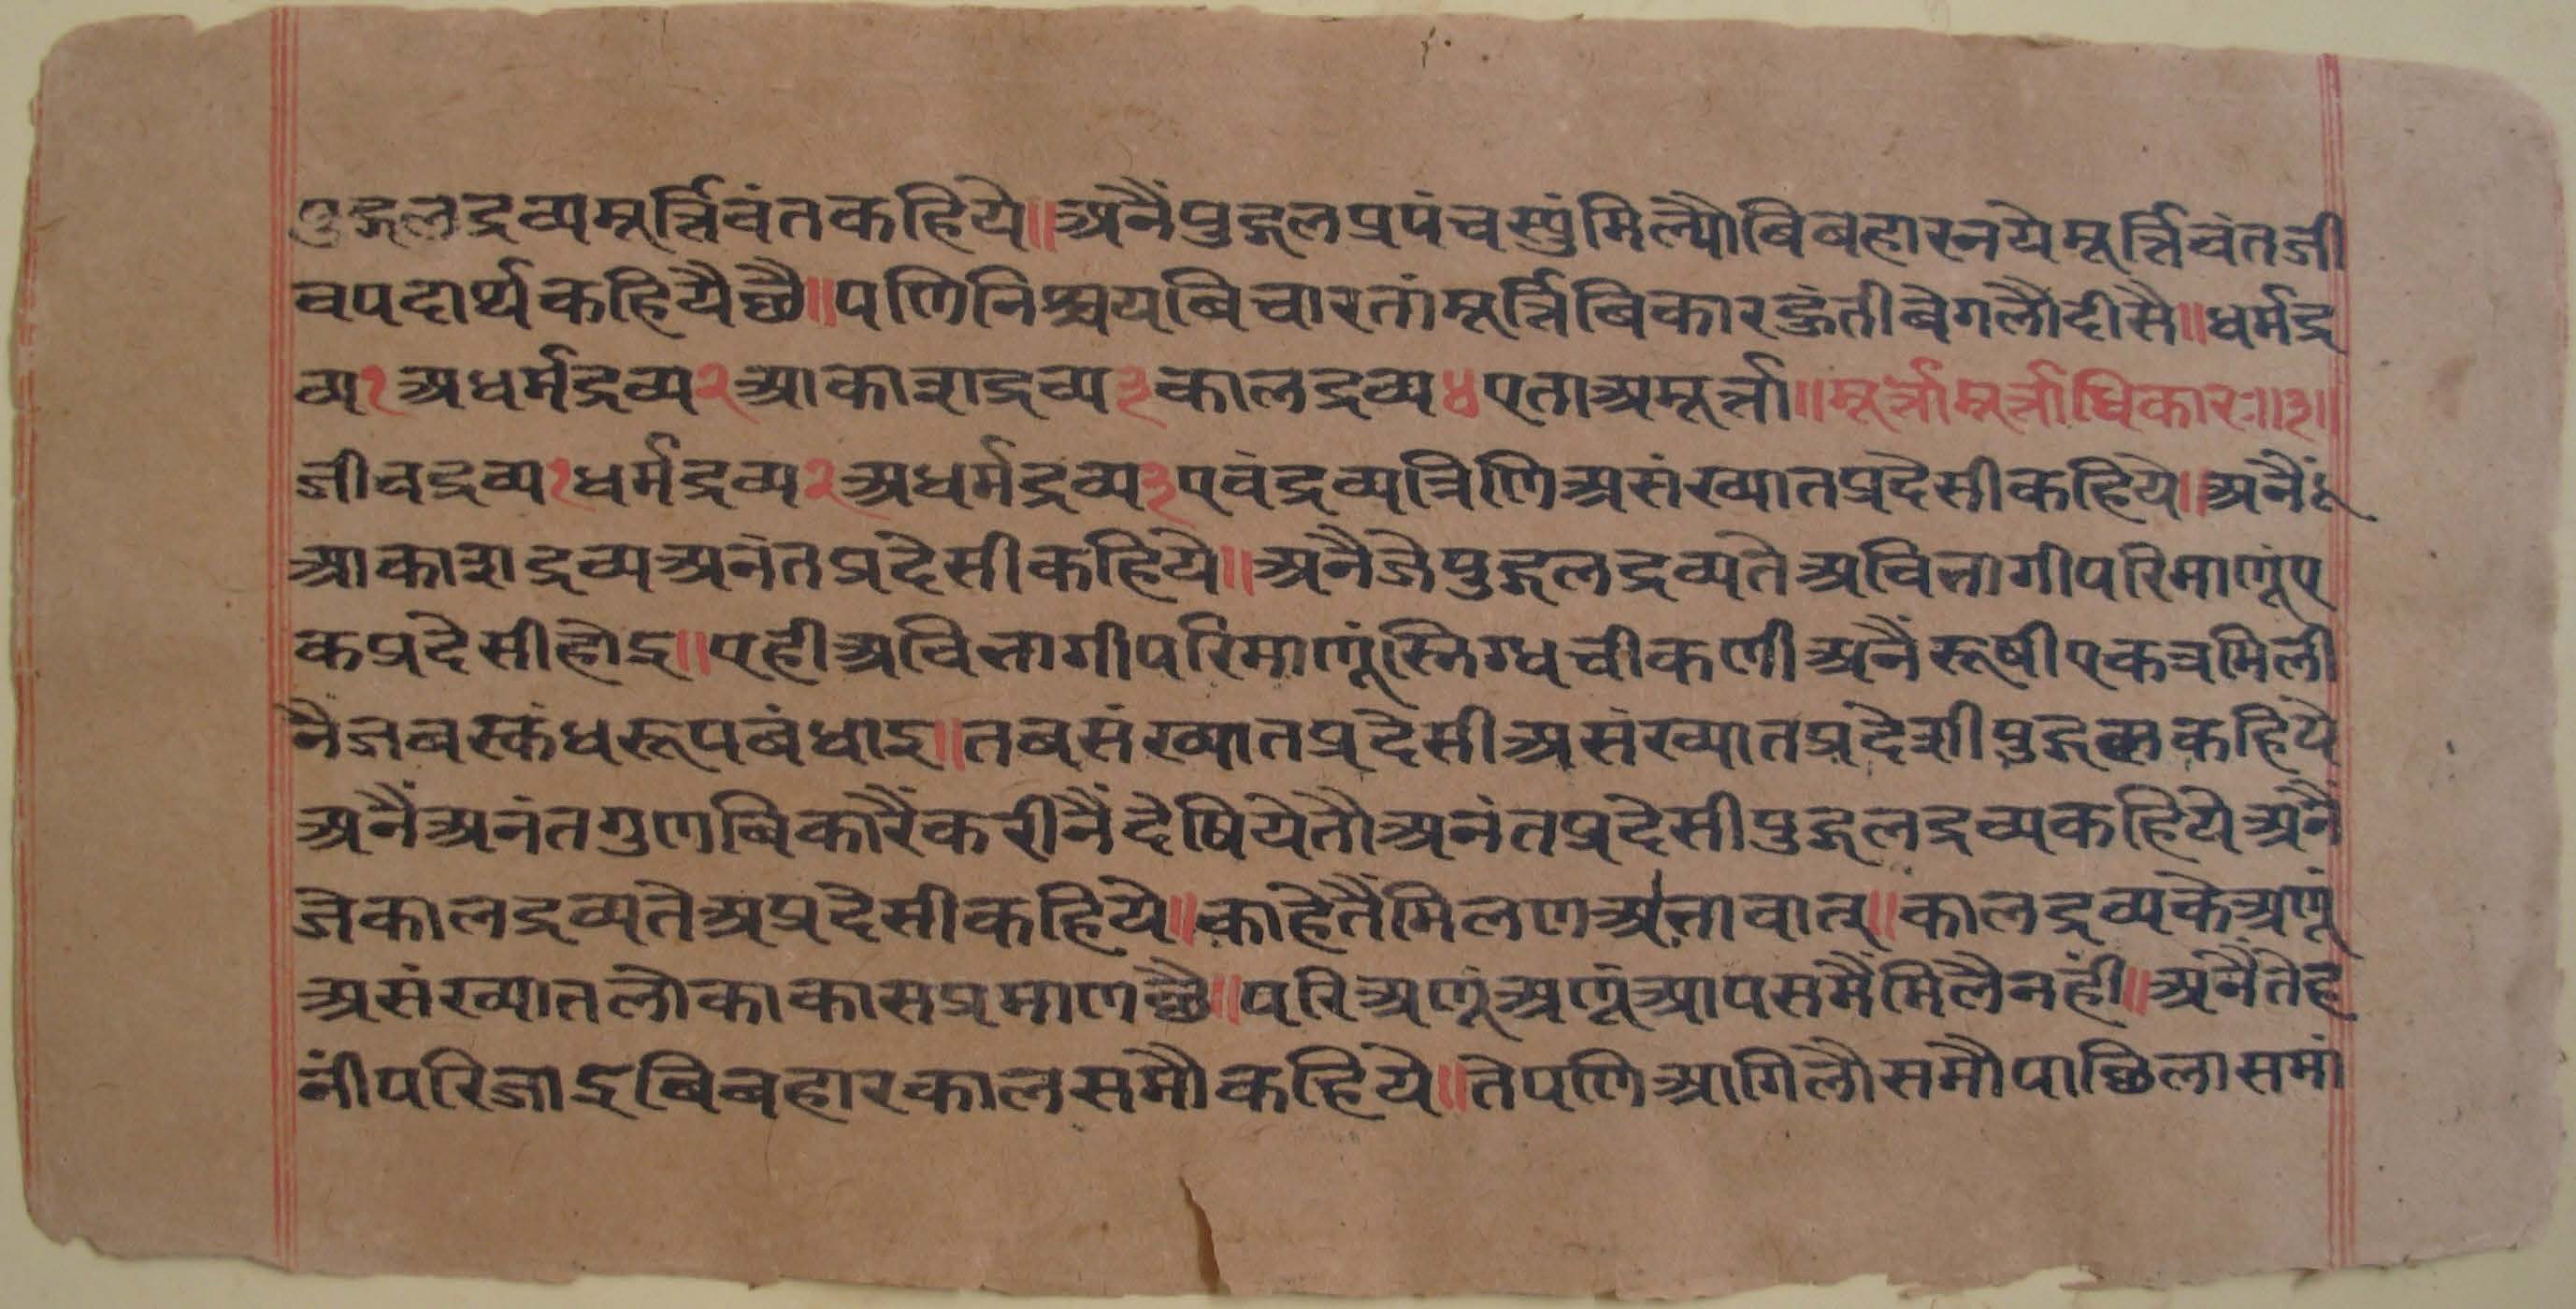 पुद्गलद्रव्यमूर्त्तिवंतकहिये॥अनैंपुद्गलप्रपंचस्युंमिल्यौबिबहारनयेमूर्त्तिवंतजी
वपदार्थकहियैछै॥पणिनिश्चयबिचारतांमूर्त्तिबिकारहुंतीबेगलौदीसै॥धर्मद्र
व्य१अधर्मद्रव्य२आकाशद्रव्य३कालद्रव्य४एताअमूर्त्ता॥मूर्त्तामूर्त्ताधिकारः॥३॥
जीवद्रव्य१धर्मद्रव्य२अधर्मद्रव्य३एवंद्रव्यत्रिणिअसंख्यातप्रदेसीकहिये॥अनैं
आकाशद्रव्यअनंतप्रदेसीकहिये॥अनैजेपुद्गलद्रव्यतेअविभागीपरिमाणूंए
कप्रदेसीहोइ॥एहीअविभागीपरिमाणूंस्निग्धचीकणीअनैंरूषीएकत्रमिली
नैजबस्कंधरूपबंधाइ॥तबसंख्यातप्रदेसीअसंख्यातप्रदेशीपुद्गलकहिये
अनैंअनंतगुणबिकारैंकरीनैंदेषियेतौअनंतप्रदेसीपुद्गलद्रव्यकहियेअनैं
जेकालद्रव्यतेअप्रदेसीकहिये॥काहेतैंमिलणअभावात्॥कालद्रव्यकेअणूं
असंख्यातलोकाकासप्रमाणछै॥परिअणूंअणूंआपसमैंमिलैनहीं॥अनैंतेह
नींपरिजाइबिबहारकालसमौकहिये॥तेपणिआगिलौसमौपाछिलासमां